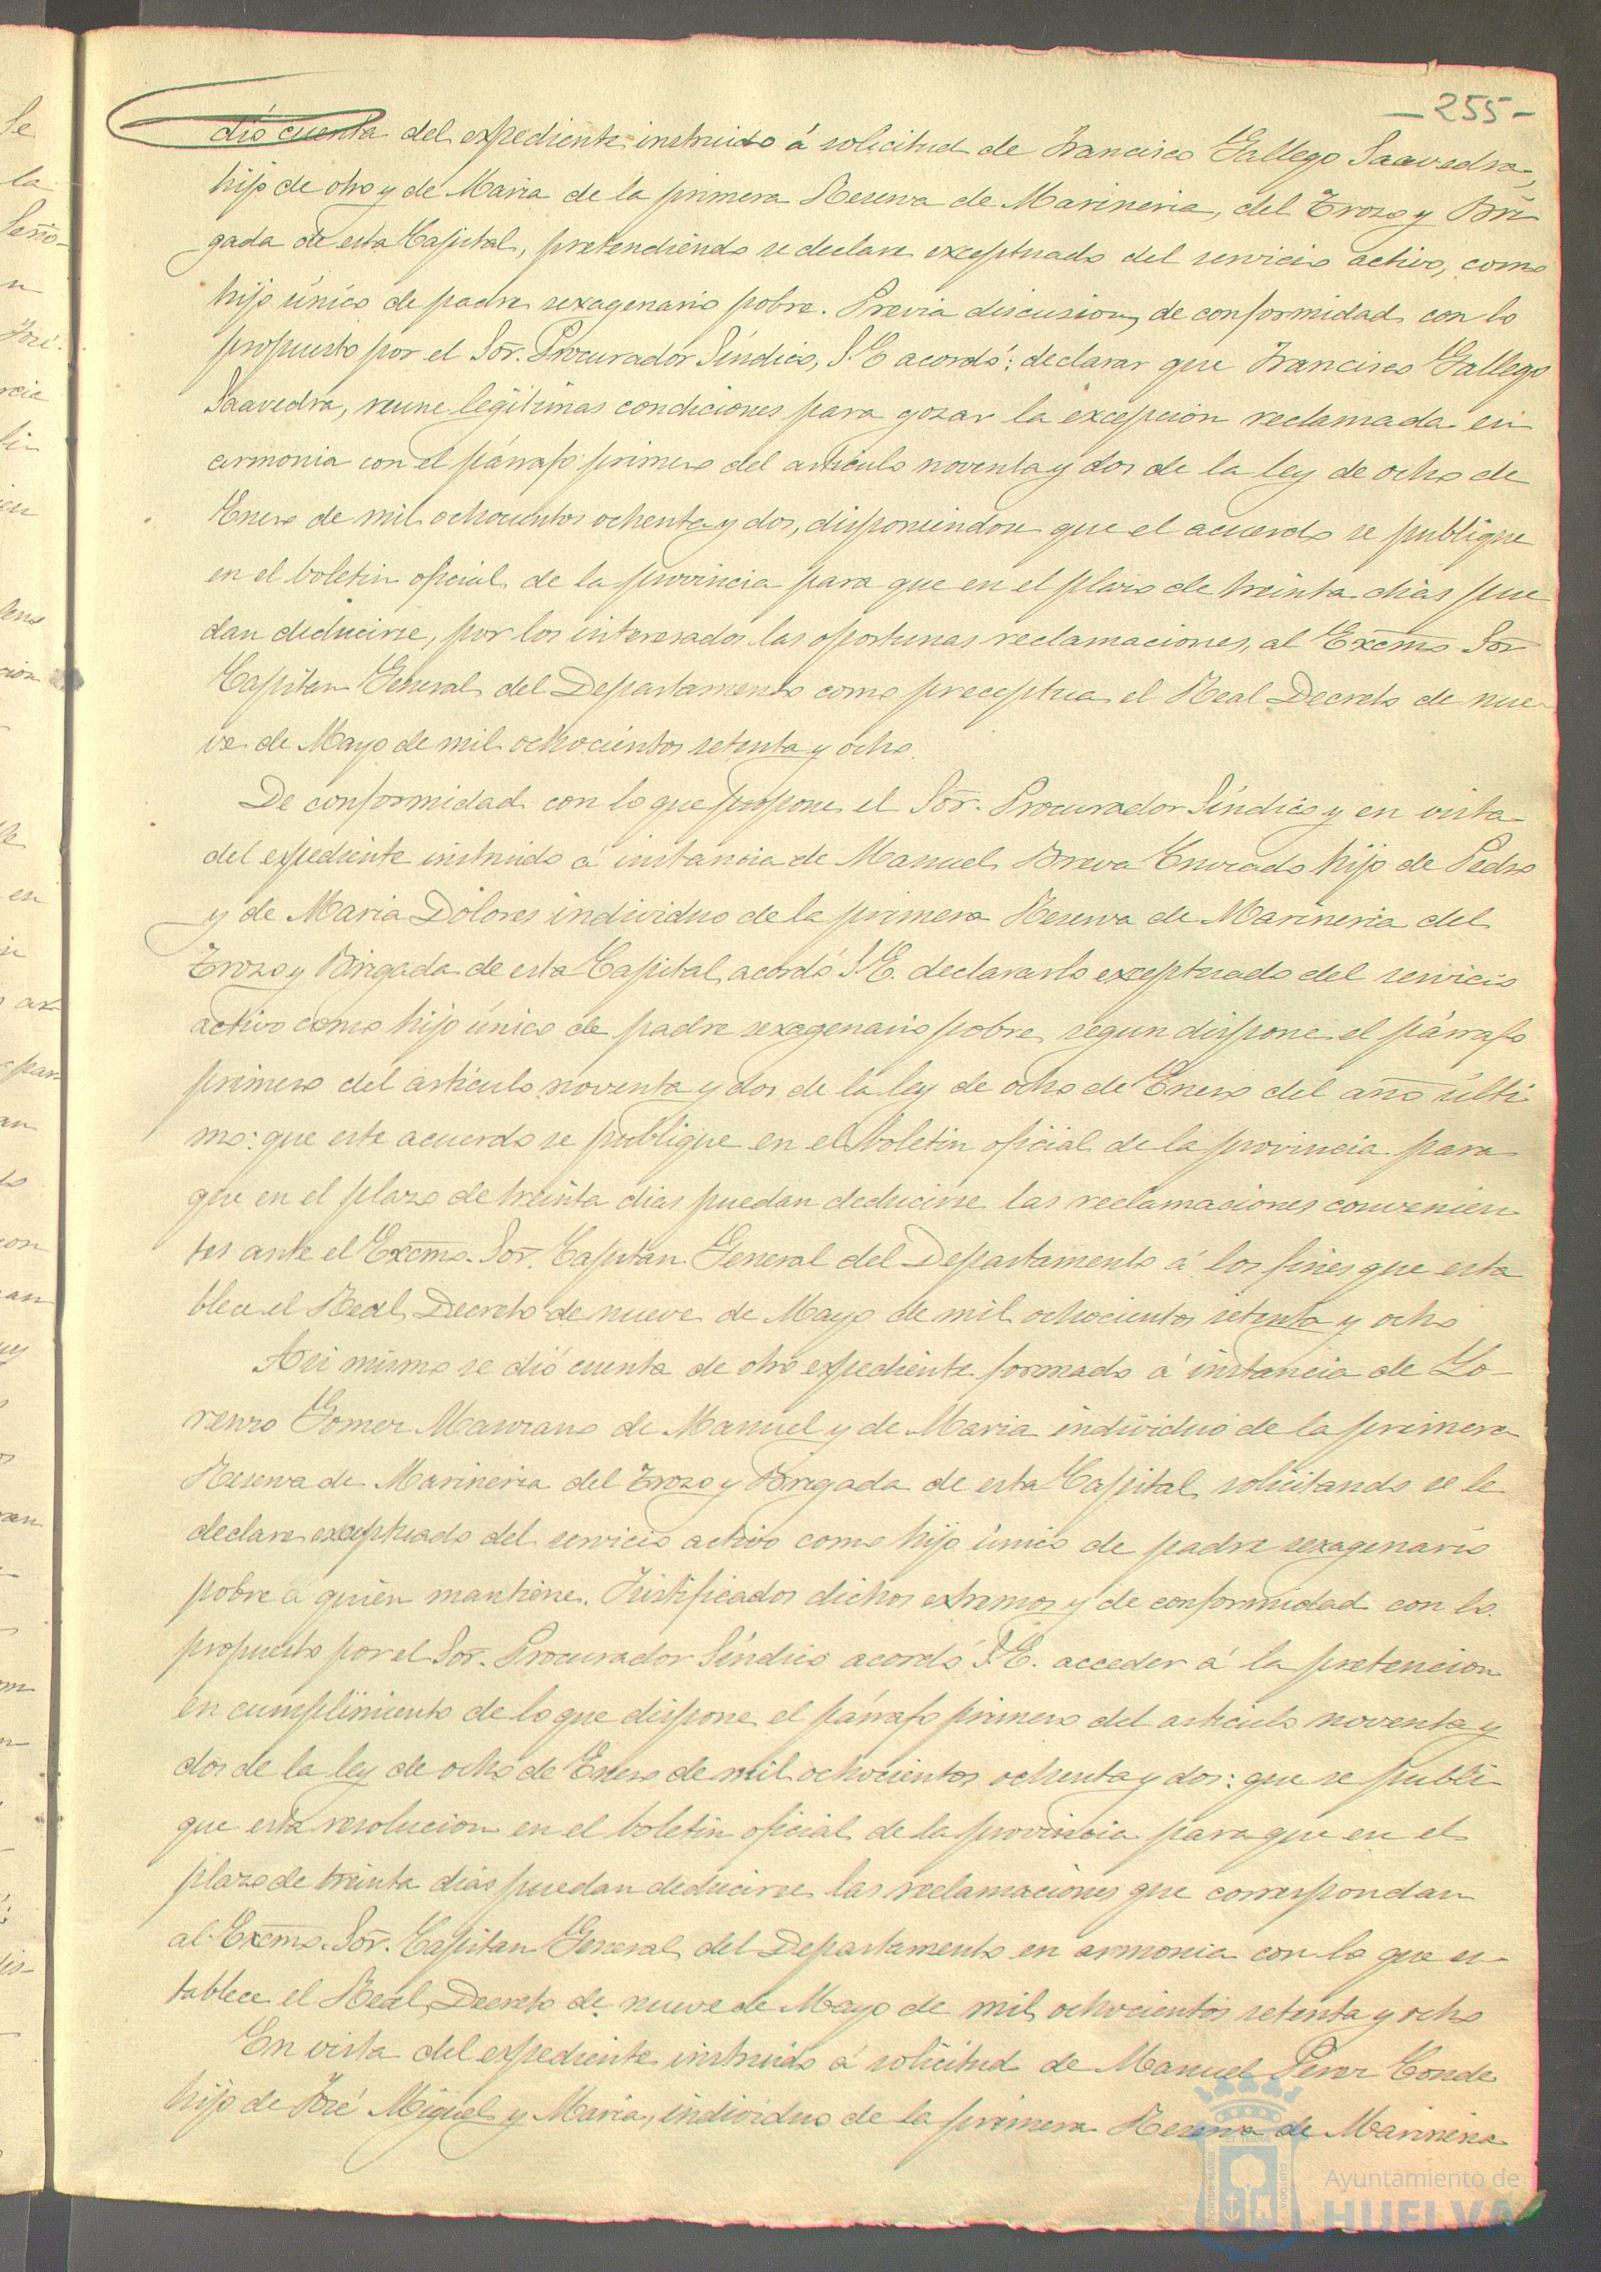 -255-
dió cuenta del expediente instruido á solicitud de Francisco Gallego Saavedra,
hijo de otro y de Maria de la primera Reserva de Marineria, del Trozo y Bri
gada de esta Capital, pretendiendo se declare exceptuado del servicio activo, como
hijo único de padre sexagenario pobre. Previa discusion, de conformidad con lo
propuesto por el Sor. Procurador Síndico, S.E acordó: declarar que Francisco Gallego
Saavedra, reune legítimas condiciones para gozar la excepcion reclamada en
armonia con el párrafo primero del articulo noventa y dos de la ley de ocho de
Enero de mil ochocientos ochenta y dos, disponiendose que el acuerdo se publique
en el boletin oficial de la provincia para que en el plazo de treinta dias pue
dan deducirse, por los interesados las oportunas reclamaciones, al Excmo Sor
Capitan General del Departamento como preceptua el Real Decreto de nue-
ve de Mayo de mil ochocientos setenta y ocho.
De conformidad con lo que propone el Sor. Procurador Síndico y en vista
del expediente instruido á instancia de Manuel Breva hijo de Pedro
y de Maria Dolores individuo de la primera Reserva de Marineria del
Trozo y Brigada de esta Capital acordó S.E. declararlo exceptuado del servicio
activo como hijo único de padre sexagenario pobre, segun dispone el párrafo
primero del articulo noventa y dos de la ley de ocho de Enero del año últi
mo: que este acuerdo se publique en el boletin oficial de la provincia para
que en el plazo de treinta dias puedan deducirse las reclamaciones convenien
tes ante el Excmo. Sor. Capitan General del Departamento á los fines que esta
blece el Real Decreto de nueve de Mayo de mil ochocientos setenta y ocho
Asi mismo se dió cuenta de otro expediente formado á instancia de Lo-
renzo Gomez Manzano de Manuel y de Maria individuo de la primera
Reserva de Marineria del Trozo y Brigada de esta Capital solicitando se le
declare exceptuado del servicio activo como hijo único de padre sexagenario
pobre á quien mantiene. Justificados dichos extremos y de conformidad con lo
propuesto por el Sor. Procurador Síndico acordó S.E. acceder á la pretencion
en cumplimiento de lo que dispone el párrafo primero del articulo noventa y
dos de la ley de ocho de Enero de mil ochocientos ochenta y dos: que se publi
que esta resolucion en el boletin oficial de la provincia para que en el
plazo de treinta dias puedan deducirse las reclamaciones que correspondan
al Excmo. Sor. Capitan General del Departamento en armonia con lo que es-
tablece el Real Decreto de nueve de Mayo de mil ochocientos setenta y ocho
En vista del expediente instruido á solicitud de Manuel Perez Conde
hijo de José Miguel y Maria, individuo de la primera Reserva de Marineria
Ayuntamiento de
HUELVA